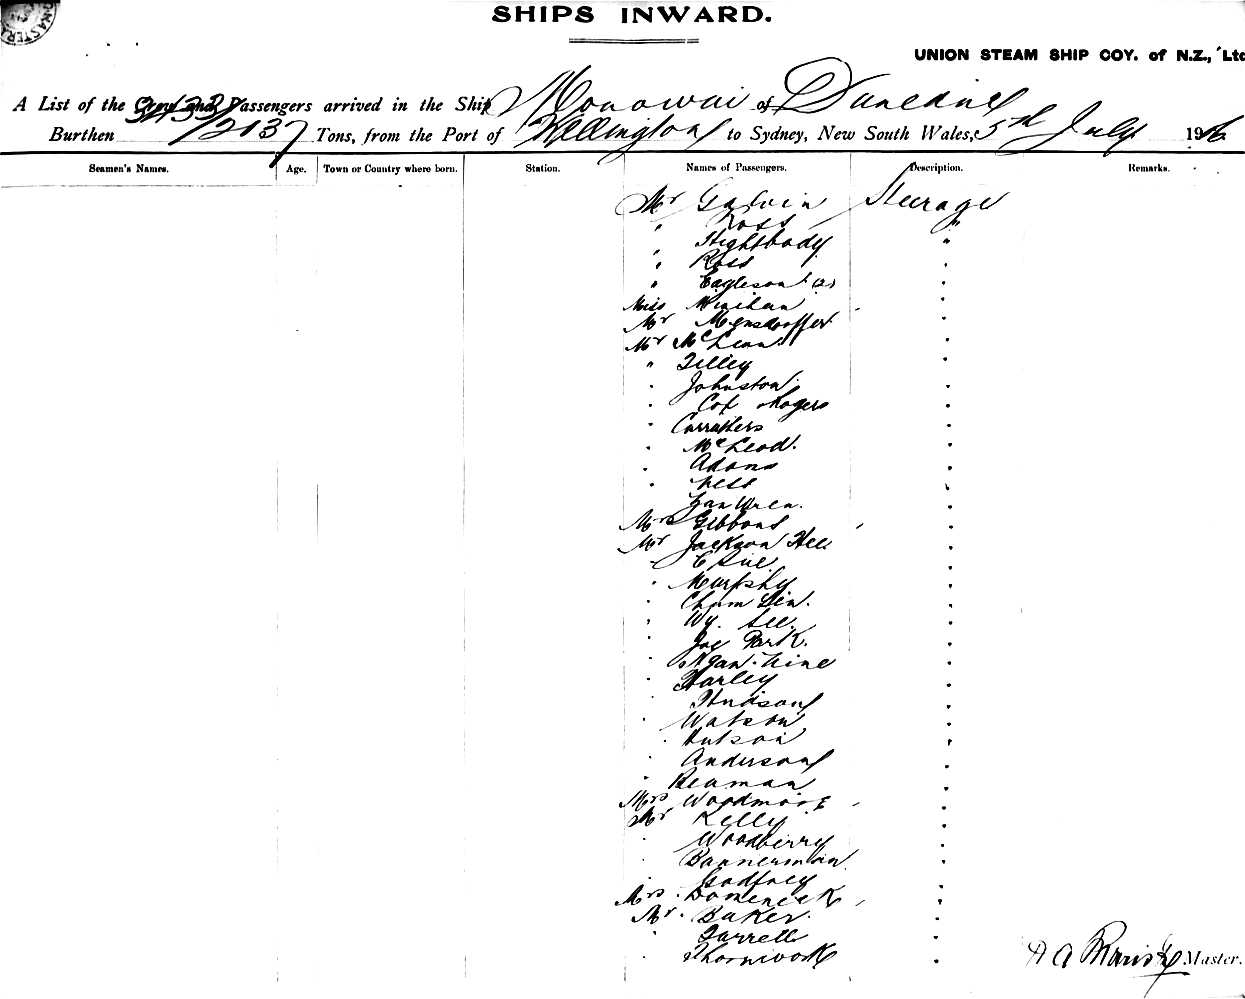 SHIPS INWARD.
UNION STEAM SHIP COY. of N.Z., Ltd
A List of the Crew and Passengers arrived in the Ship Monowai of Dunedin
Burthen 3433/2137 Tons, from the Port of Wellington to Sydney, New South Wales, 5th July 1916
Seamen's Names. Age. Town or Country where born. Station. Names of Passengers. Description. Remarks.
Mr Galvin Steerage
" Ross "
" Hightbody "
" Ross "
" Eagleson "
Miss Minihan "
Mr Mensdorffer "
Mr McLean "
" Tilley "
" Johnston "
" Cox Rogers "
" Carruthers "
" McLeod "
" Adams "
" Ness "
" Van Uren "
Mrs Gibbons "
Mr Jackson Hee "
" E Sue "
" Murphy "
" Chum Lin "
" Wy Lee "
" Joe Park "
" Ngan Nine "
" Harley "
" Hudson "
" Watson "
" Hutson "
" Anderson "
" Reaman "
Mrs Woodmore "
Mr Kelly "
" Woodberry "
" Bannerman "
" Godfrey "
Mrs Domeneck "
Mr Baker "
" Farrell "
" Thornwork "
Master.